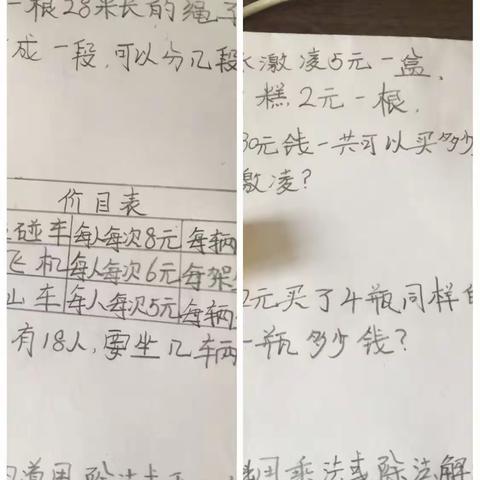 一根28米长的绳子
成一段,可以分几段
价目表
碰车 每人每次8元 每辆
飞机 每人每次6元 每架
山车 每人每次5元 每辆
有18人,要坐几车两
激凌5元一盒,
糕2元一根,
30元钱一共可以买多少
激凌?
2元买了4瓶同样
一瓶多少钱?
用乘法或除法解